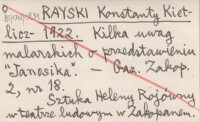 RAYSKI Konstanty Kiet-
licz- 1922. Kilka uwag
malarskich o przedstawieniu
"Jarosika". - Gaz. Zakop.
2, nr 18.
Sztuka Heleny Rojówny
w teatrze ludowym w Zakopanem.